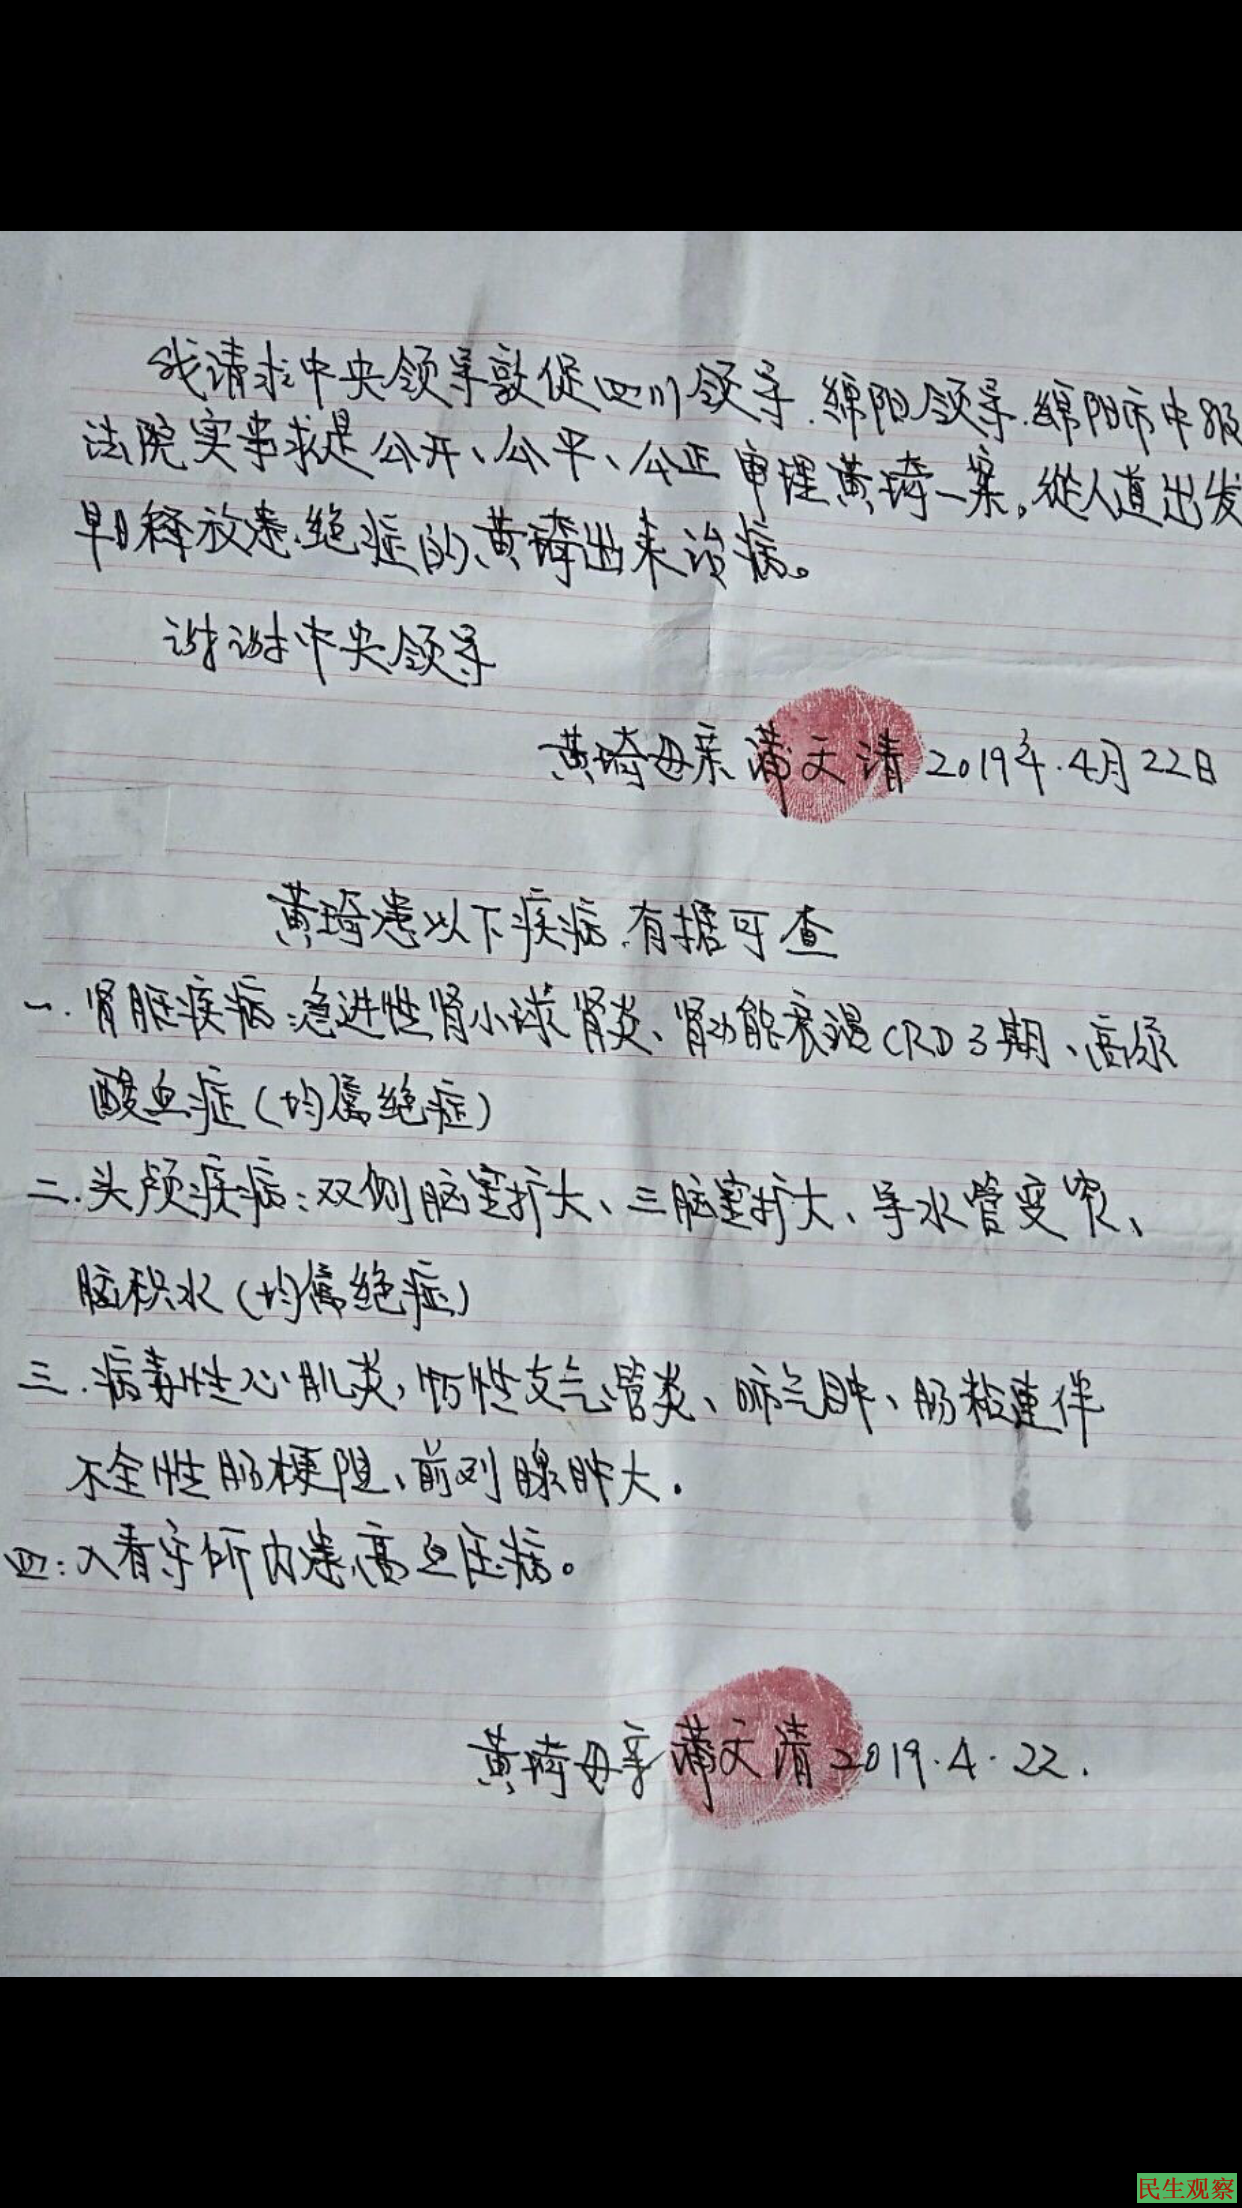 我请求中央领导敦促四川领导.绵阳领导.绵阳市中级
法院实事求是公开、公平、公正审理黄琦一案。從人道出发
早日释放患绝症的黄琦出来治病。
谢谢中央领导
黄琦母亲 蒲文清 2019年.4月22日
黄琦患以下疾病.有据可查
一.肾脏疾病:急进性肾小球肾炎、肾功能衰竭CRD3期、高尿
酸血症(均属绝症)
二.头颅疾病:双侧脑室扩大、三脑室扩大、导水管变窄、
脑积水(均属绝症)
三.病毒性心肌炎,慢性支气管炎、肺气肿、肠粘连伴
不全性肠梗阻、前列腺肿大.
四:入看守所内患高血压病。
黄琦母亲 蒲文清 2019.4.22.
民生观察